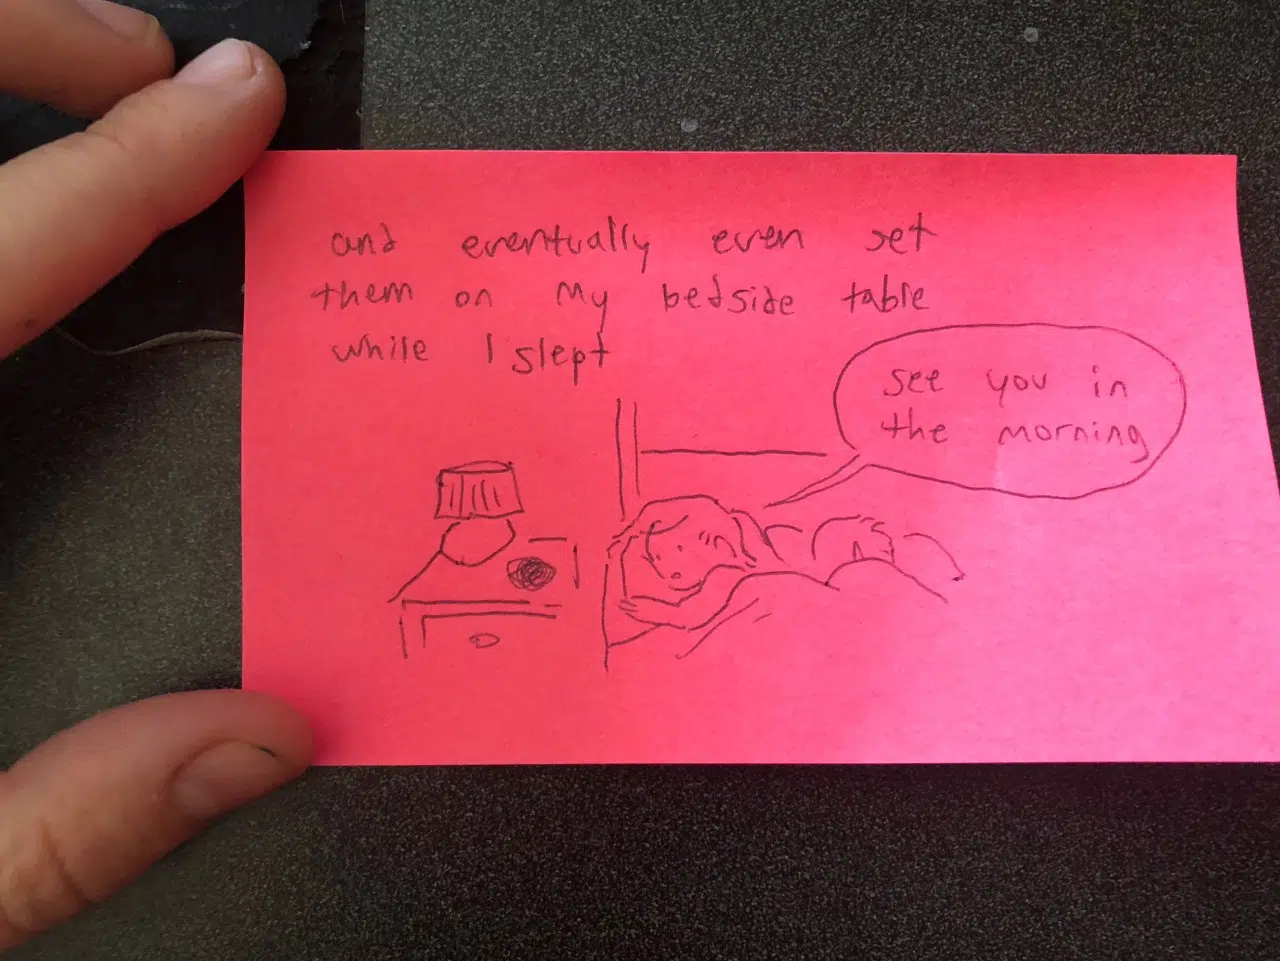 and eventually even set
them on my bedside table
while I slept
see you in
the morning